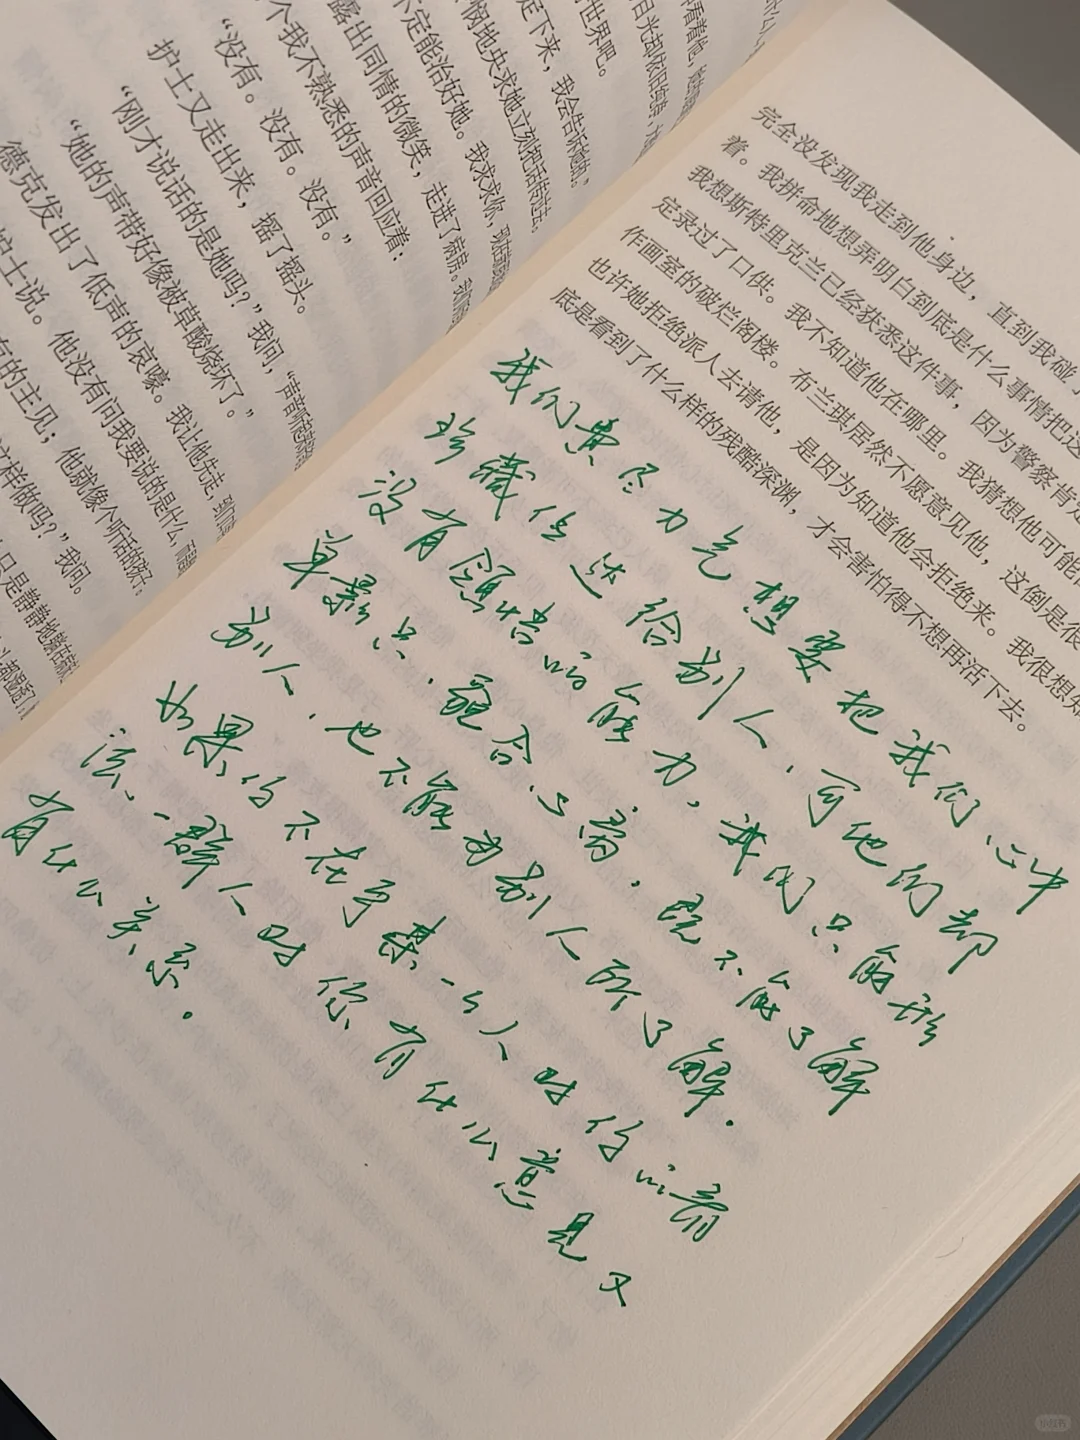 个我不熟悉的声音回应着：
“没有。没有。没有。”
护士又走出来，摇了摇头。
“刚才说话的是她吗？”我问，“声音听起来
“她的声带好像被草酸烧坏了。”
德克发出了低声的哀嚎。我让他先走，
护士说。他没有问我要说的是什么，而
有的主见；他就像个听话的孩子
这样做吗？”我问。
露出同情的微笑，走进了病房。
不定能治好她。我求求你，
悯地央求她立刻把话传过去。
定下来，我会告诉她的。”
世界吧。
完全没发现我走到他身边，直到我碰了
着。我拼命地想弄明白到底是什么事情把这
我想斯特里克兰已经获悉这件事，因为警察肯定
定录过了口供。我不知道他在哪里。我猜想他可能
作画室的破烂阁楼。布兰琪居然不愿意见他，这倒是很
也许她拒绝派人去请他，是因为知道他会拒绝来。我很想知
底是看到了什么样的残酷深渊，才会害怕得不想再活下去。
我们费尽力气想要把我们心中
珍藏传达给别人，可他们却
没有领悟的能力，我们只能形
单影只，貌合心离，既不能了解
别人，也不能为别人所了解.
如果你不在乎某一个人对你的看
法，一群人对你有什么意见又
有什么关系。
小红书